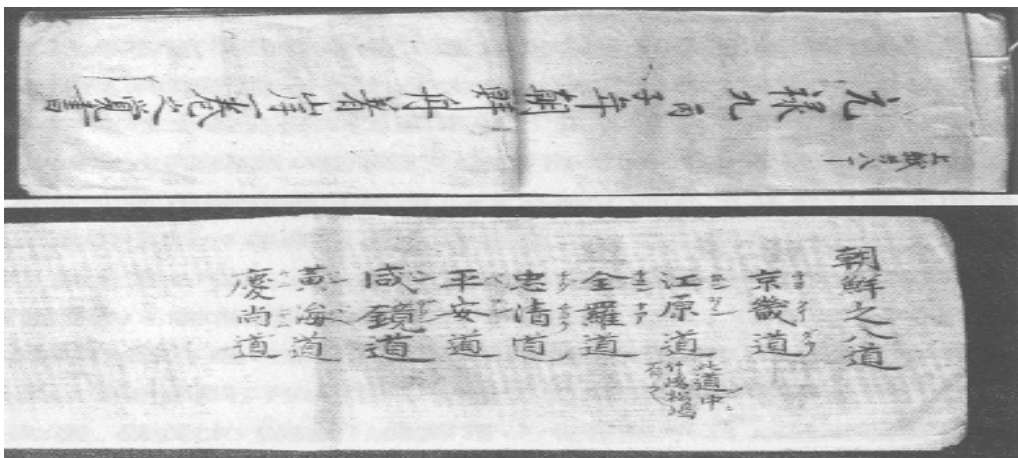 元禄九丙子年朝鮮舟着岸一巻之覚書
上紙共八丁
朝鮮之八道
京畿道
江原道
此道中ニ
竹嶋松嶋
有之
全羅道
忠清道
平安道
咸鏡道
黄海道
慶尚道